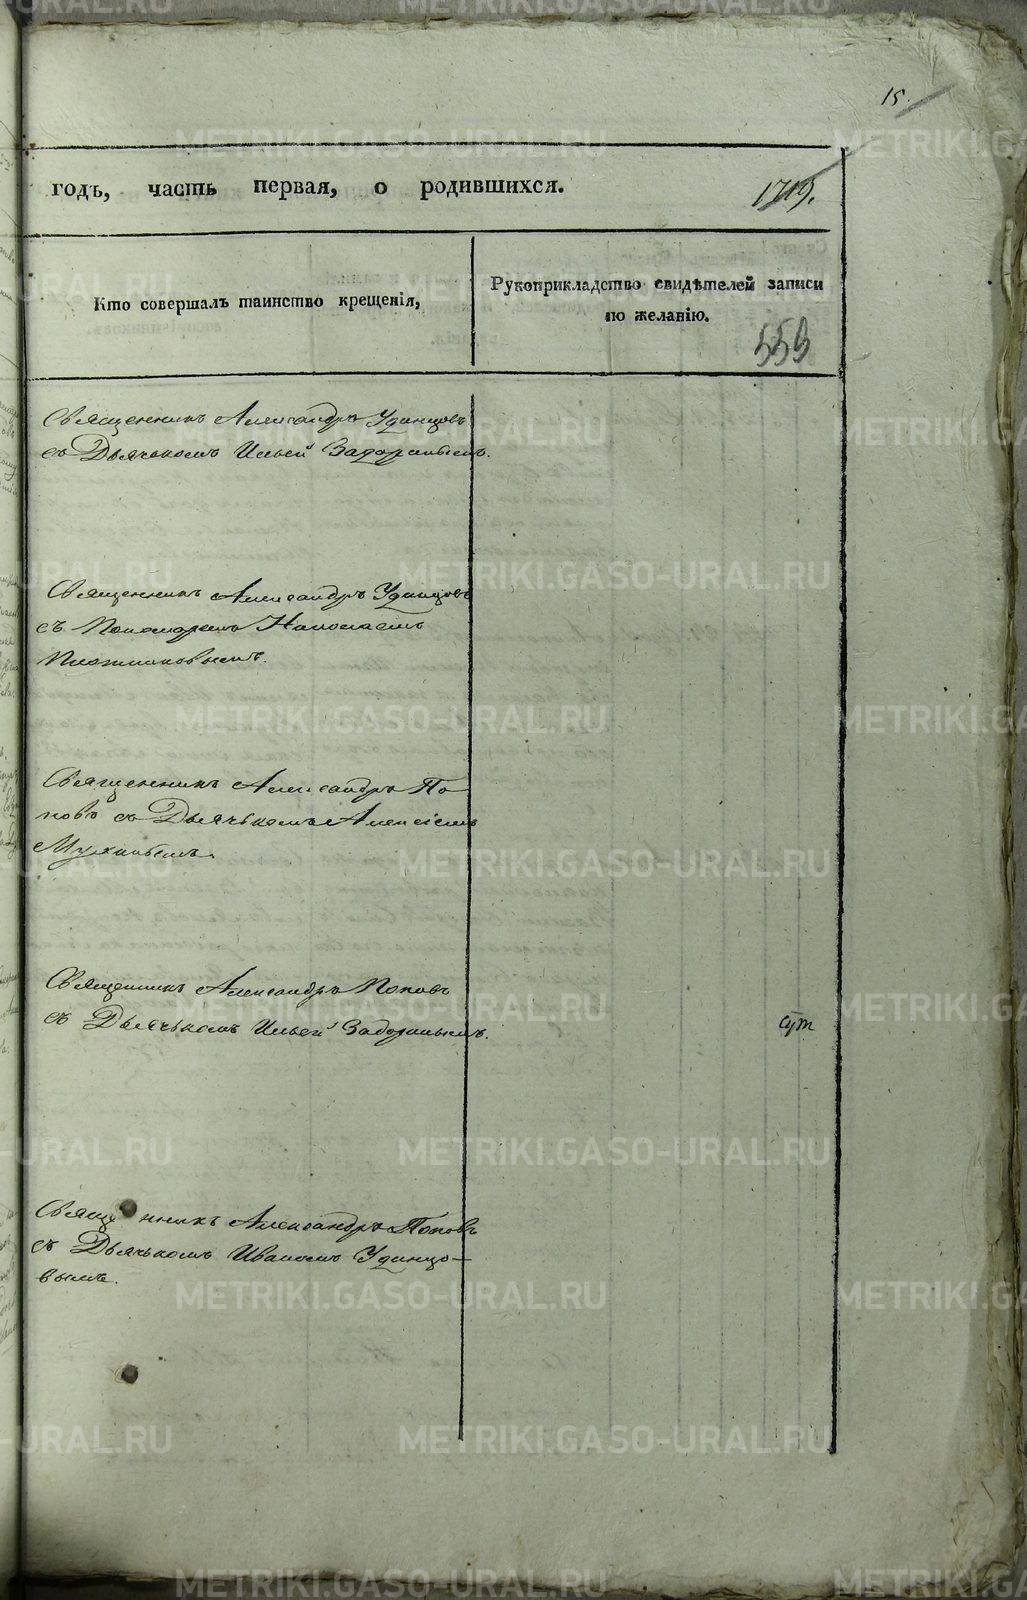 15.
годъ, часть первая, о родившихся.
1719.
Кто совершалъ таинство крещенія,
Рукоприкладство свидѣтелей записи
по желанію.
559
Священникъ Александръ Удинцовъ
съ Дьячькомъ Ильей Задоринымъ.
Священникъ Александръ Удинцовъ
съ Пономаремъ Николаемъ
Плотниковымъ.
Священникъ Александръ По-
повъ съ Дьячькомъ Алексіемъ
Мухинымъ.
Священникъ Александръ Поповъ
съ Дьячькомъ Ильей Задоринымъ.
Священникъ Александръ Поповъ
съ Дьячькомъ Иваномъ Удинцо-
вымъ.
METRIKI.GASO-URAL.RU